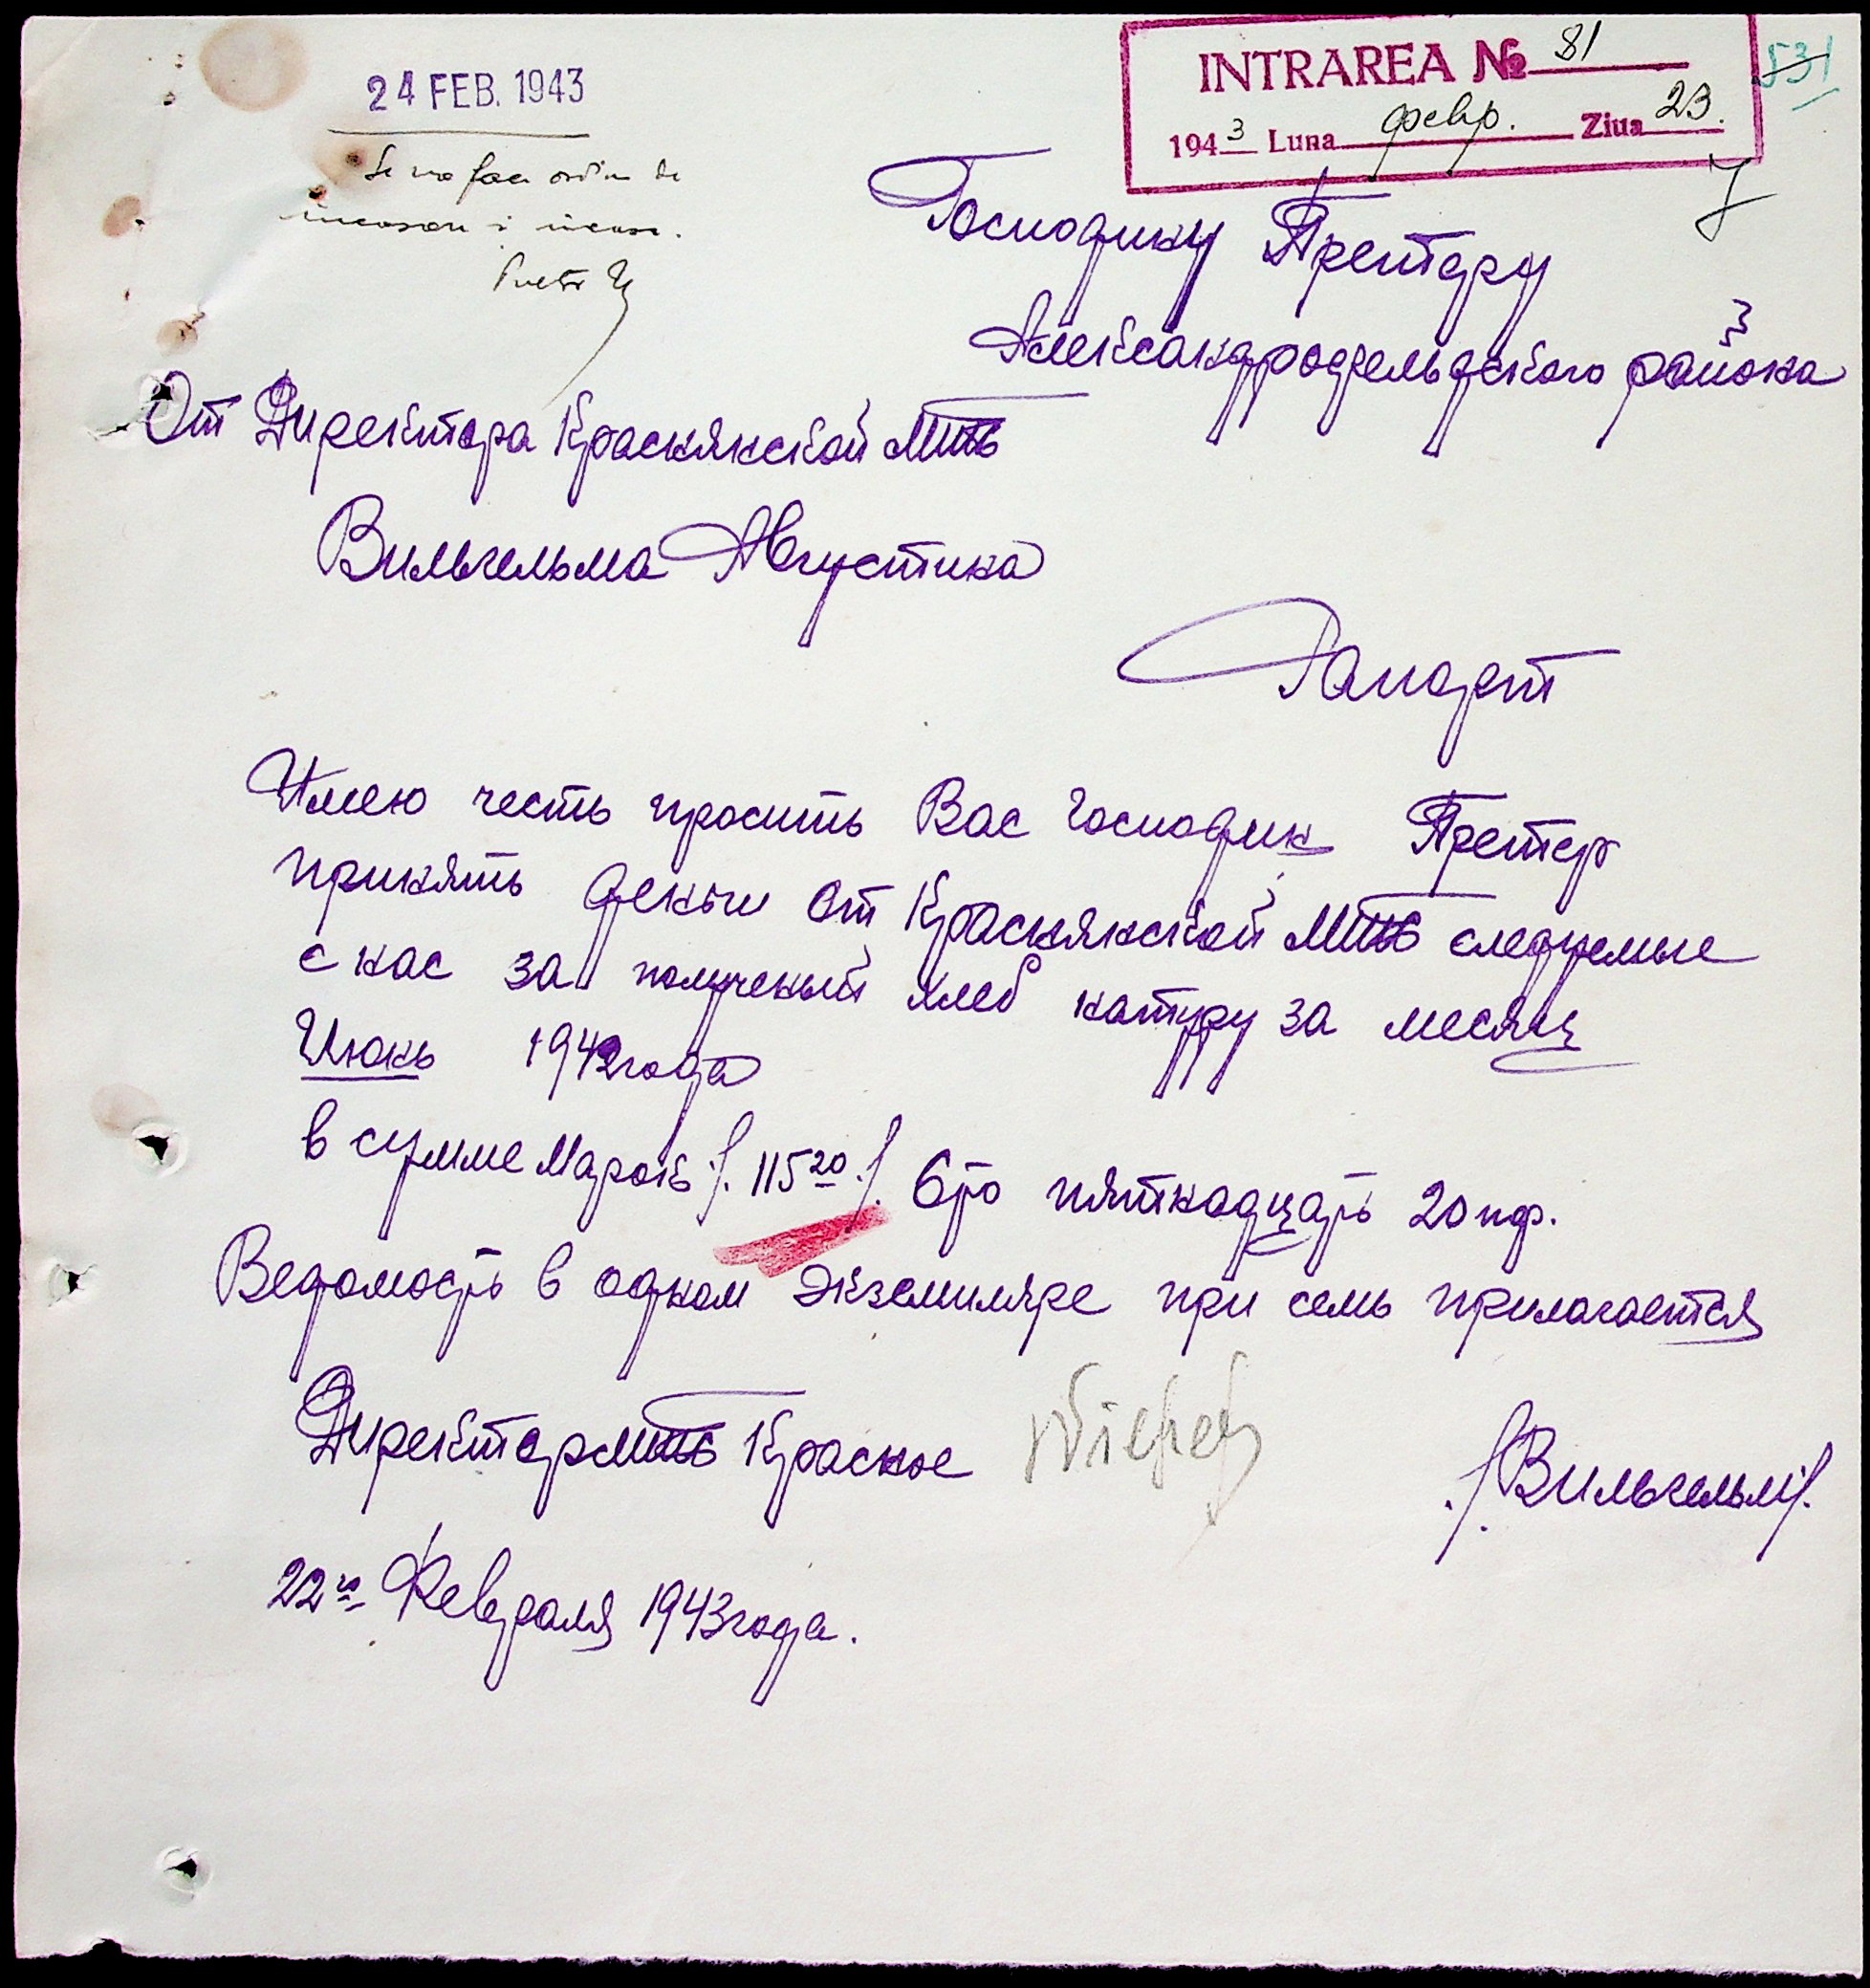 24 FEB. 1943
INTRAREA № 81
1943 Luna февр. Ziua 23.
531
Se va face ordin de
Господину Претору
Александрофельдского района
От Директора Краснянской МТС
Вильгельма Августина
Рапорт
Имею честь просить Вас Господин Претор
принять деньги от Краснянской МТС следуемые
с нас за полученый хлеб натуру за месяц
Июнь 1942 года
в сумме Марок /. 115 20 ./. Сто пятнадцать 20 пф.
Ведомость в одном экземпляре при семь прилагается
Директор МТС Красное
/. Вильгельм /.
22го Февраля 1943 года.